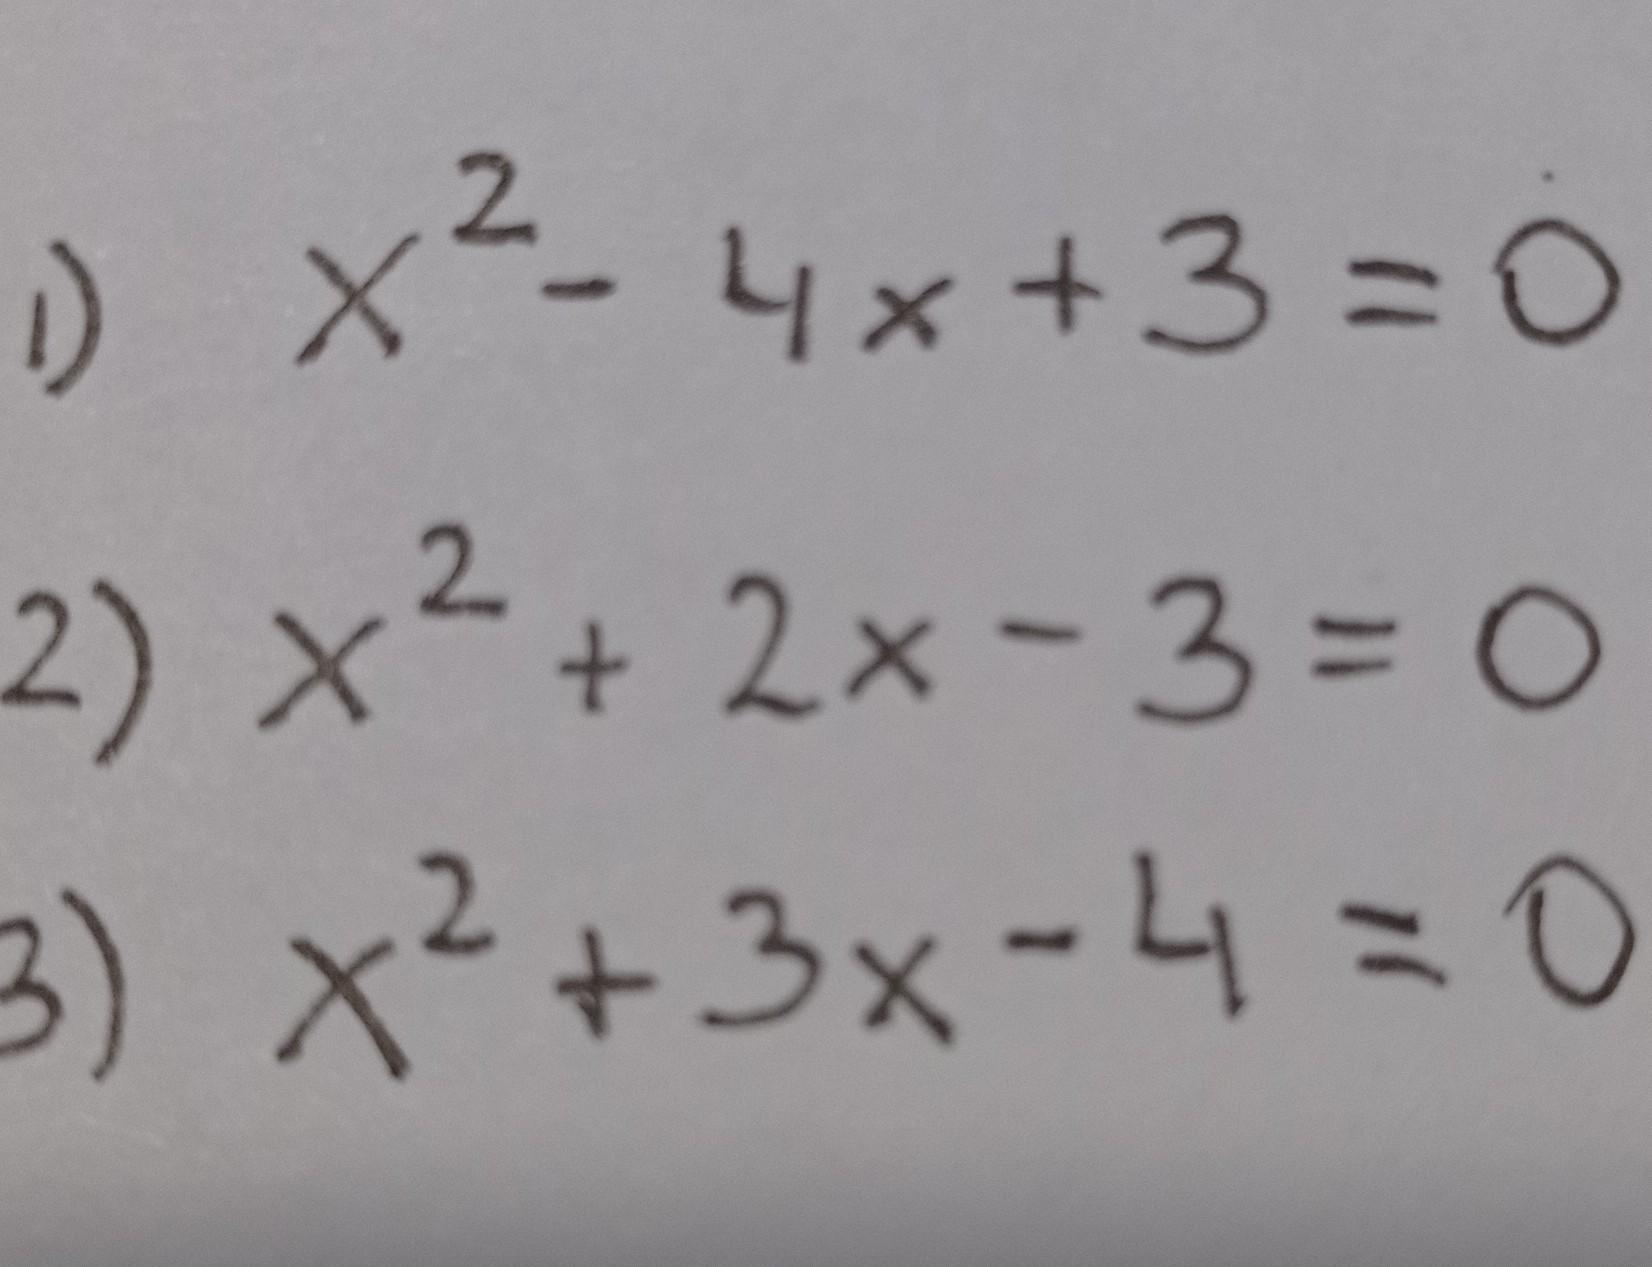 1) x² - 4x + 3 = 0
2) x² + 2x - 3 = 0
3) x² + 3x - 4 = 0